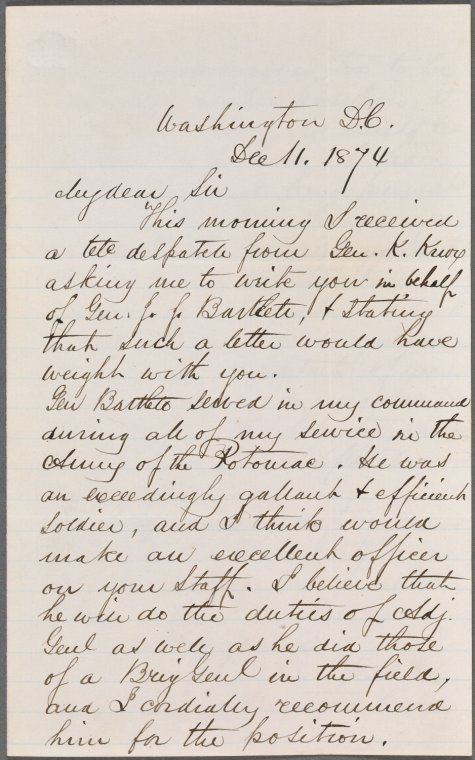 Washington D.C.
Dec 11. 1874
My dear Sir
This morning I received
a tele despatch from Gen. K. Knox
asking me to write you in behalf
of Gen. J. J. Bartlett, & stating
that such a letter would have
weight with you.
Gen Bartlett served in my command
during all of my service in the
Army of the Potomac. He was
an exceedingly gallant & efficient
soldier, and I think would
make an excellent officer
on your Staff. I believe that
he will do the duties of Adj.
Genl as well as he did those
of a Brig Genl in the field,
and I cordially recommend
him for the position.